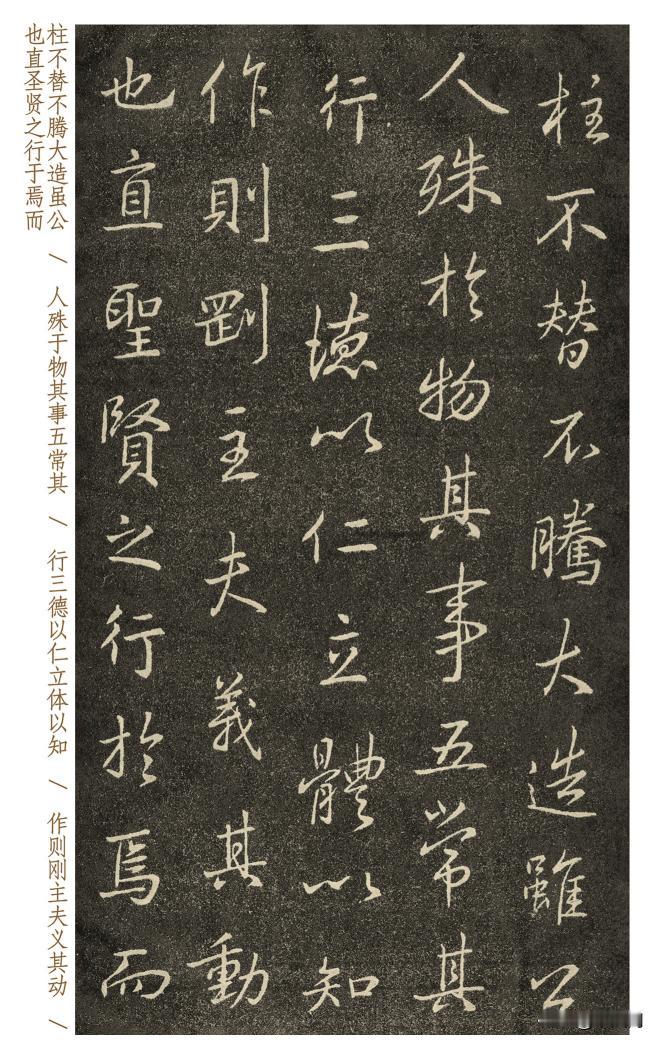 柱不替不騰大造雖公
人殊於物其事五常其
行三德以仁立體以知
作則剛主夫義其動
也直聖賢之行於焉而
柱不替不腾大造虽公 / 人殊于物其事五常其 / 行三德以仁立体以知 / 作则刚主夫义其动 /
也直圣贤之行于焉而